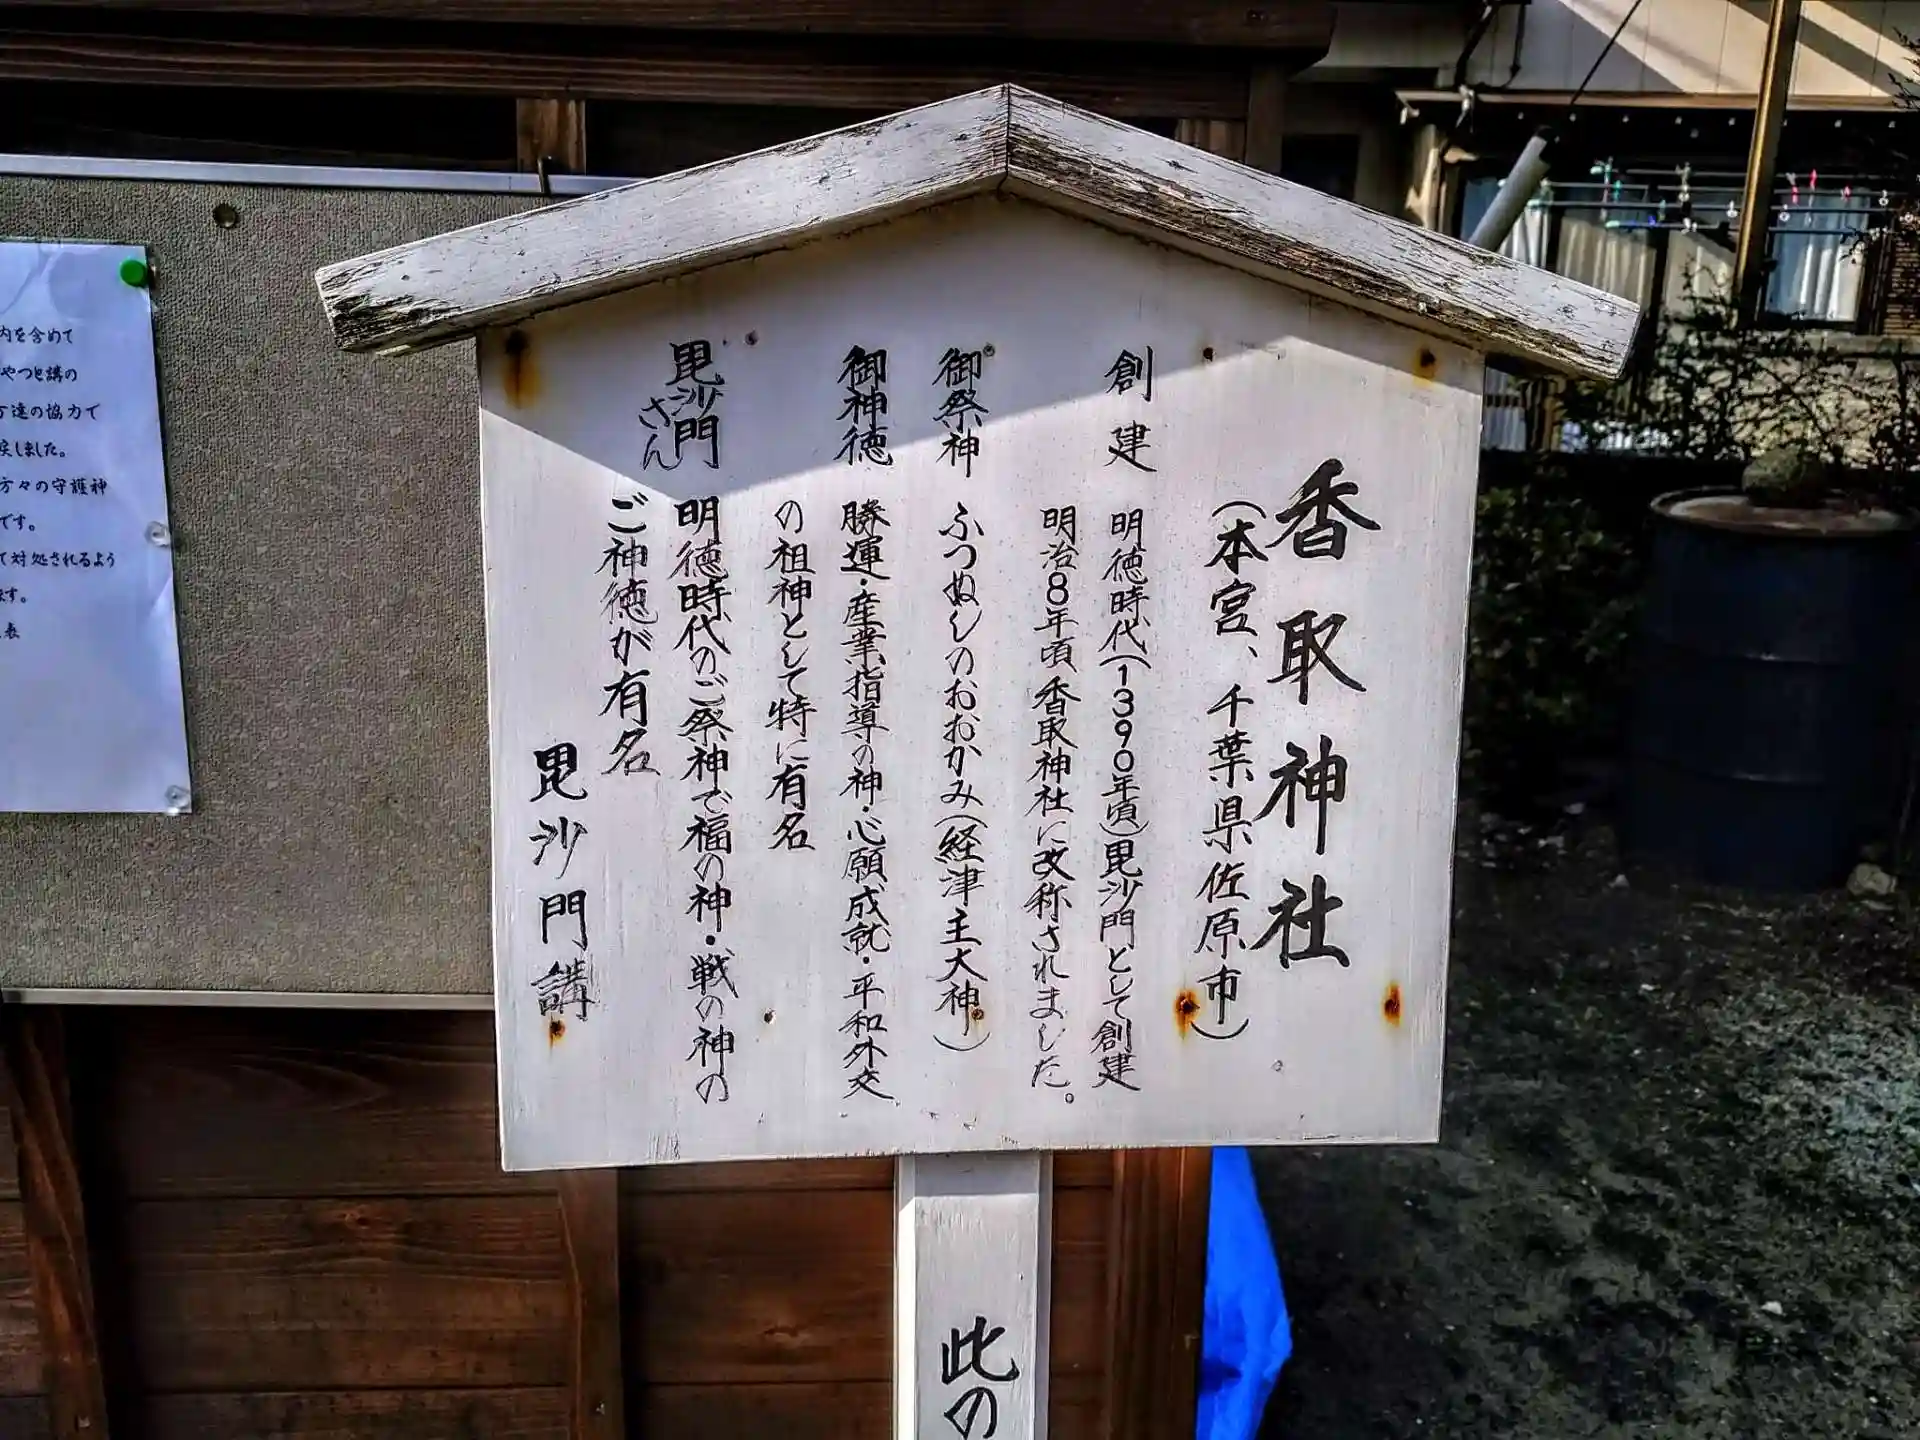 香取神社
(本宮、千葉県佐原市)
創建 明徳時代(1390年頃)毘沙門として創建
明治8年頃 香取神社に改称されました。
御祭神 ふつぬしのおおかみ(経津主大神)
御神徳 勝運・産業指導の神・心願成就・平和外交
の祖神として特に有名
毘沙門さん 明徳時代のご祭神で福の神・戦の神の
ご神徳が有名
毘沙門講
此の
内を含めて
やつと講の
達の協力で
しました。
方々の守護神
です。
て対処されるよう
ます。